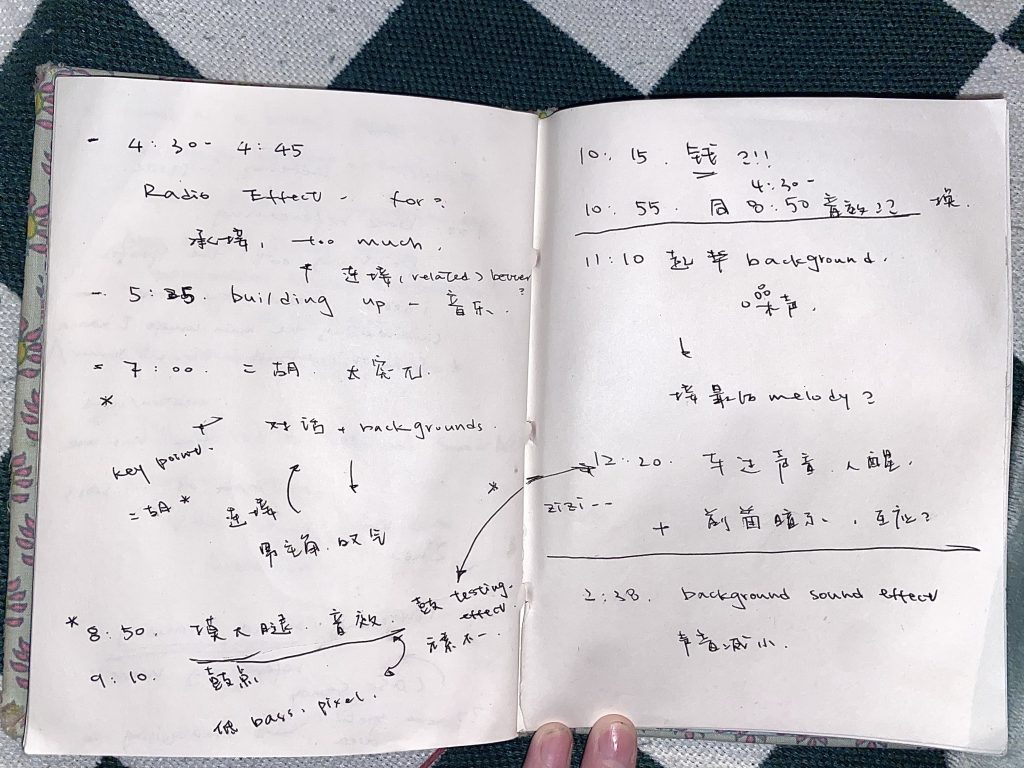 - 4:30- 4:45
Radio Effect - for?
承接, too much.
↑ 连接,(related) better?
- 5:35. building up - 音乐.
= 7:00. 二胡. 太突兀.
*
对话 + backgrounds.
key point.
二胡*
连接
男主角. 叹气
* 8:50. 摸大腿. 音效.
鼓 testing effect.
元素不一.
9:10. 鼓点
低 bass. pixel.
10:15. 钱?!!
4:30-
10:55. 同 8:50 音效?? 换.
11:10 起 background.
噪声.
↓
接 melody?
* 12:20. 车过声音. 人醒.
zizi--
+ 前面暗示,
2:38. background sound effect
声音减小.